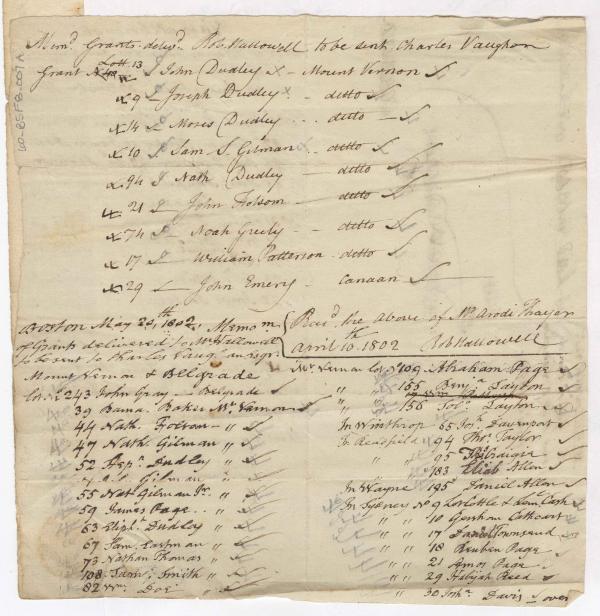 Mem.º Grants deliv.d Rob Hallowell to be sent Charles Vaughan
Grant Lott 13 John Dudley x - Mount Vernon
9 Joseph Dudley x - ditto
14 Moses Dudley ... ditto
10 Sam S. Gilman ... ditto
94 Nath Dudley - ditto
21 John Folsom - ditto
74 Noah Greely - ditto
17 William Patterson - ditto
29 John Emery - Canaan
Boston May 20th, 1802, Memom
of Grants delivered to Mr Hallowell
to be sent to Charles Vaughan esqr.
Mount Vernon & Belgrade
Lot No 243 John Gray - Belgrade
39 Bama. Baker Mt Varnon
44 Nath. Folsom - "
47 Nath. Gilman "
52 Dudley "
Gilman "
55 Nat Gilman Jr. "
59 James Page .. "
63 Elipt. Dudley "
67 Sam. Eastman "
73 Nathan Thomas "
108 Saml. Smith "
82 Wm. Doe "
Rec.d the above of Mr Arodi Thayer
April 10th 1802 Rob Hallowell
Mt Vernon Lot No 109 Abraham Page
" " 155 Benj.a Layton
" " 156 Layton
In Winthrop 65 Davenport
In Readfield 94 Thos. Taylor
" " 95 Craige
" 183 Eliab Allen
In Wayne 195 Daniel Allen
In Sydney No 9 Lot Lottle & Lem Cash
" " 10 Gershom Cathcart
" " 17 Daniel Townsend
" " 18 Reuben Page
" " 21 Amos Page
" " 29 Abijah Reed
" " 30 Davis over
60-BSF8-007A